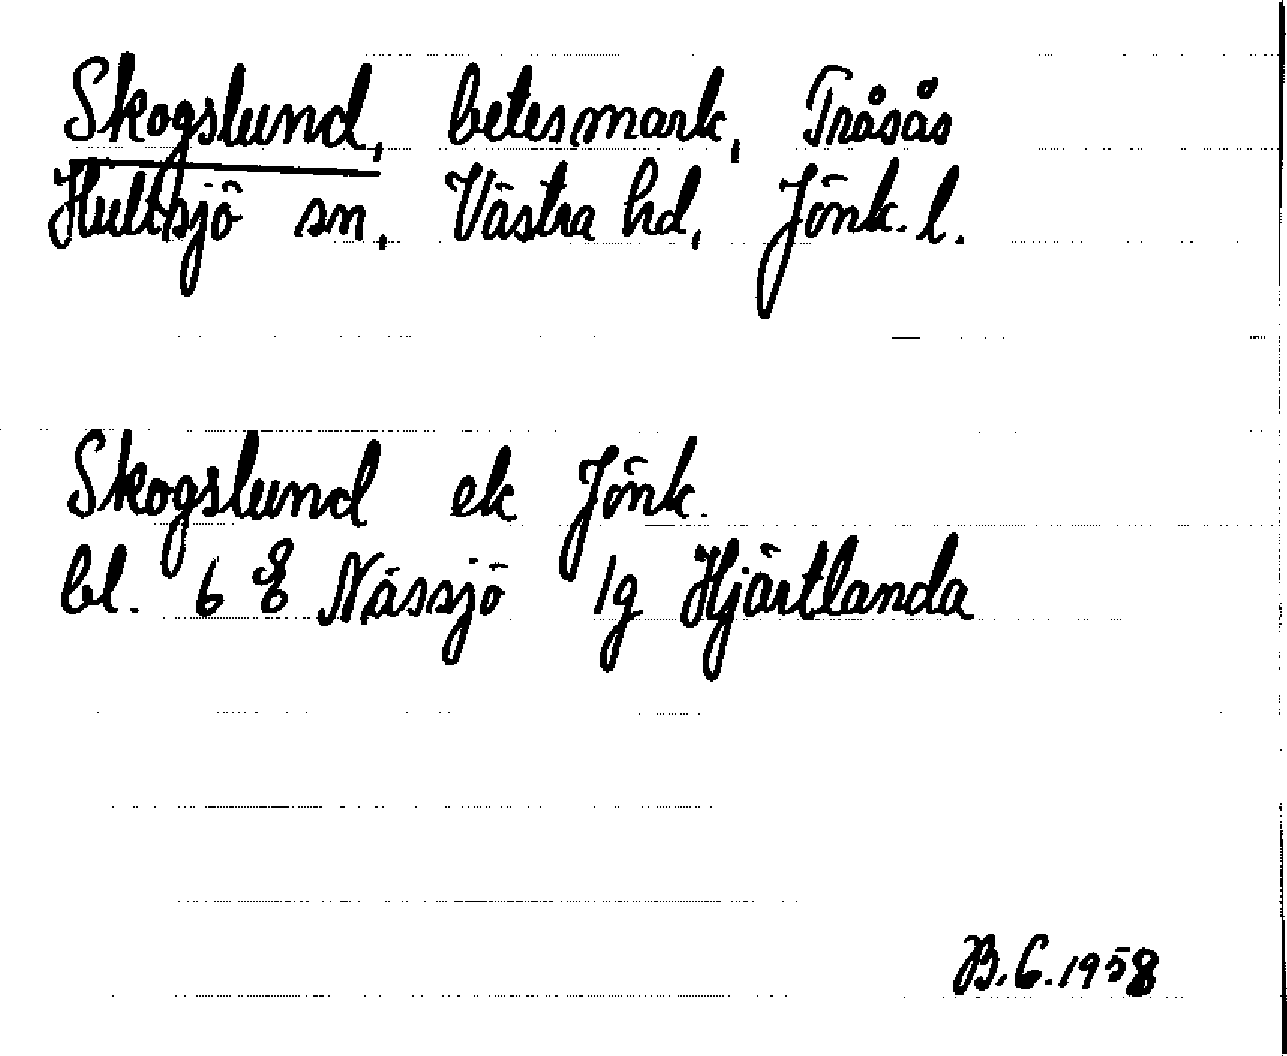 Skogslund, betesmark, Tråsås
Hultsjö sn, Västra hd, Jönk. l.
Skogslund ek Jönk.
bl. 6 E Nässjö 1g Hjärtlanda
B.C. 1958